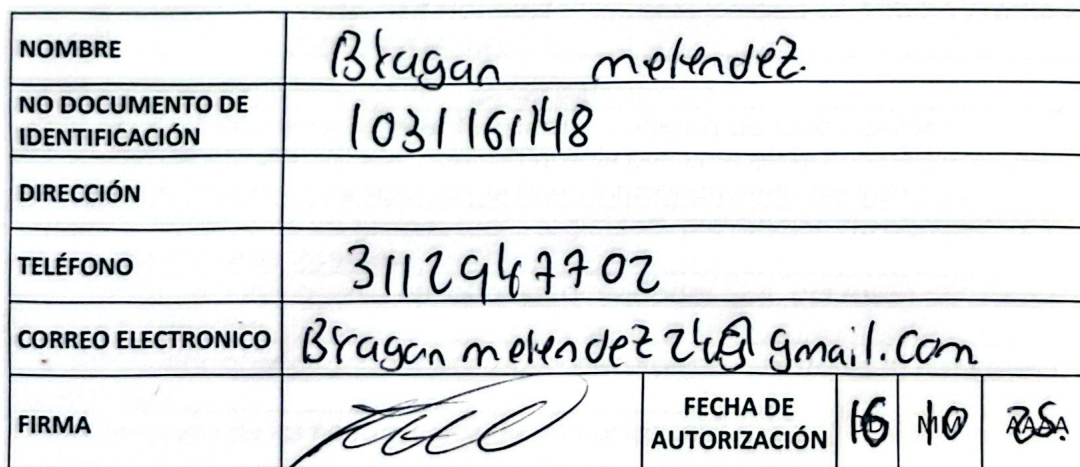 NOMBRE Bragan melendez.
NO DOCUMENTO DE
IDENTIFICACIÓN 1031161148
DIRECCIÓN
TELÉFONO 3112947702
CORREO ELECTRONICO Bragan melendez 24@gmail.com
FIRMA FECHA DE
AUTORIZACIÓN 16 10 25.